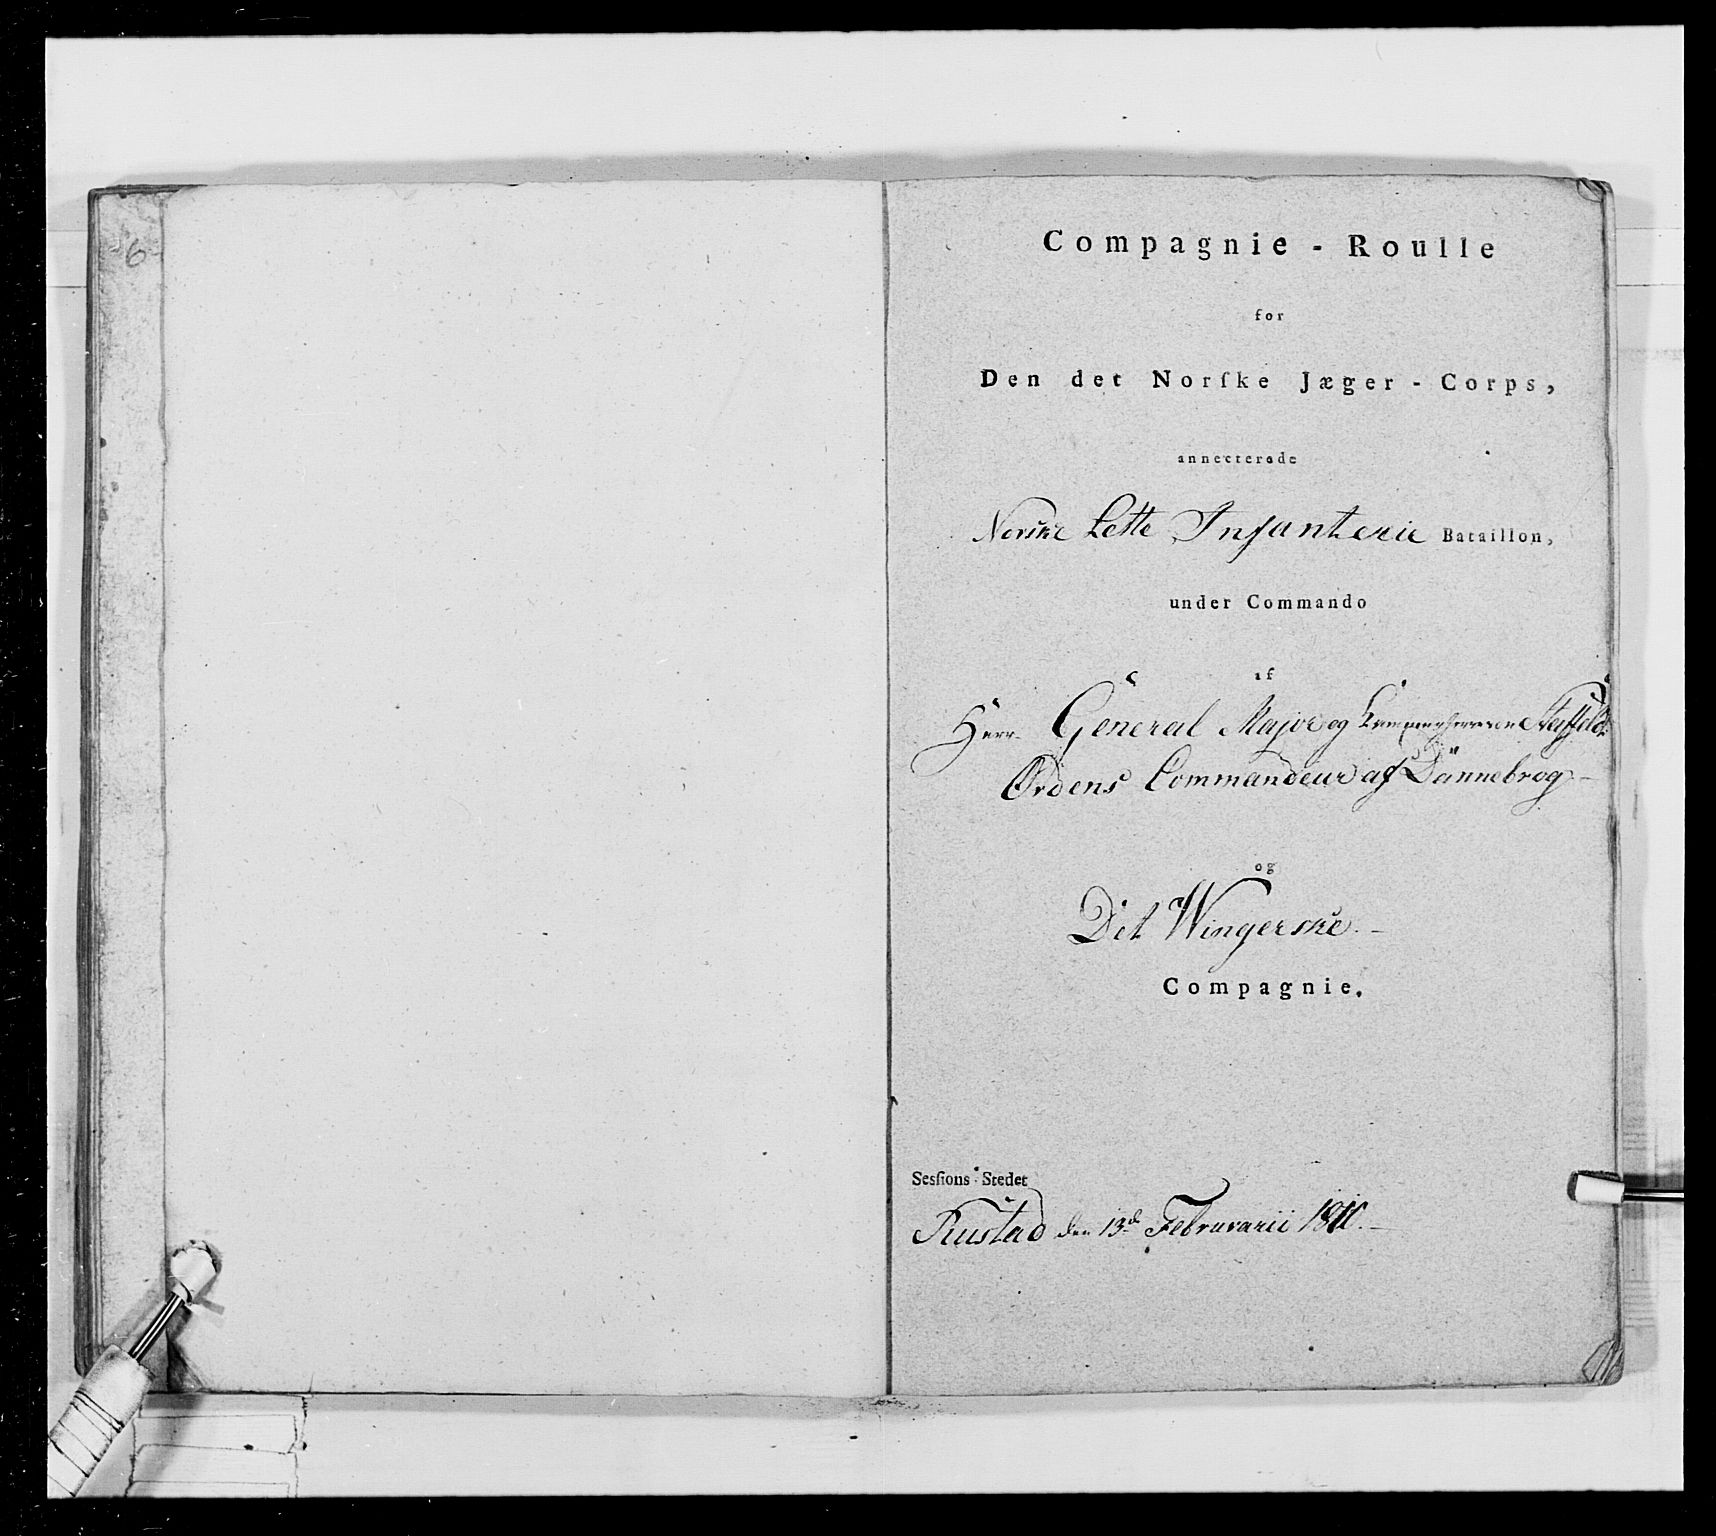 6
Compagnie - Roulle
for
Den det Norſke Jæger - Corps,
annecterede
Norske Lette Infanterie Bataillon,
under Commando
af
Herr General Major og Kammerherre von Staffeldt
Ordens Commandeur af Dannebrog
og
Det Wingerske
Compagnie.
Sesſions-Stedet
Rustad den 13de Februarii 1811.